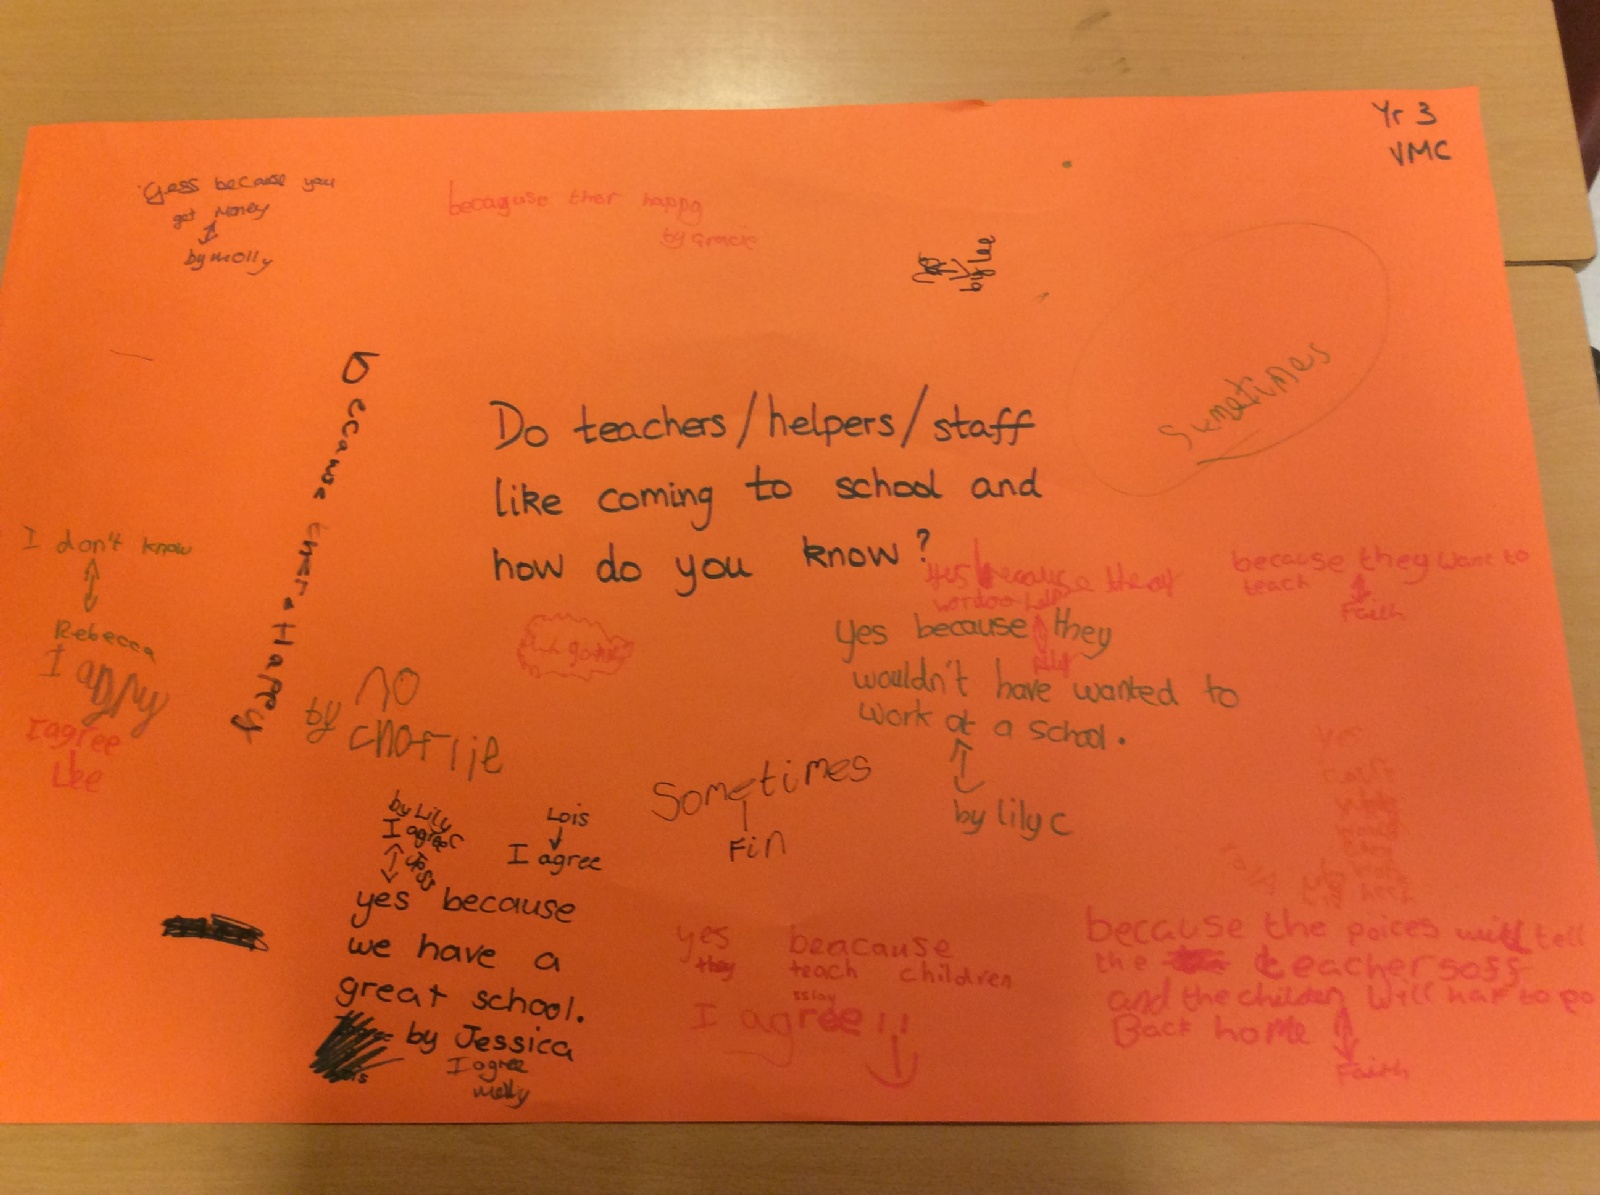 Yr 3
VMC
yess because you
got Money
by molly
becaguse ther happy
by Gracie
by lee
Sumetimes
Do teachers/helpers/staff
like coming to school and
how do you know?
because ther a Happy
I don't know
Rebecca
I agree
Lee
no
by charlie
yes because they
because they want to
teach
Faith
yes because they
wouldn't have wanted to
work at a school.
by lily c
Sometimes
Fin
by Lily C
I agree
Jess
Lois
I agree
yes because
we have a
great school.
by Jessica
I agree
molly
yes beacause
they teach children
I agree!!
because the poices will tell
the teachers off
and the children will har to go
Back home
Faith